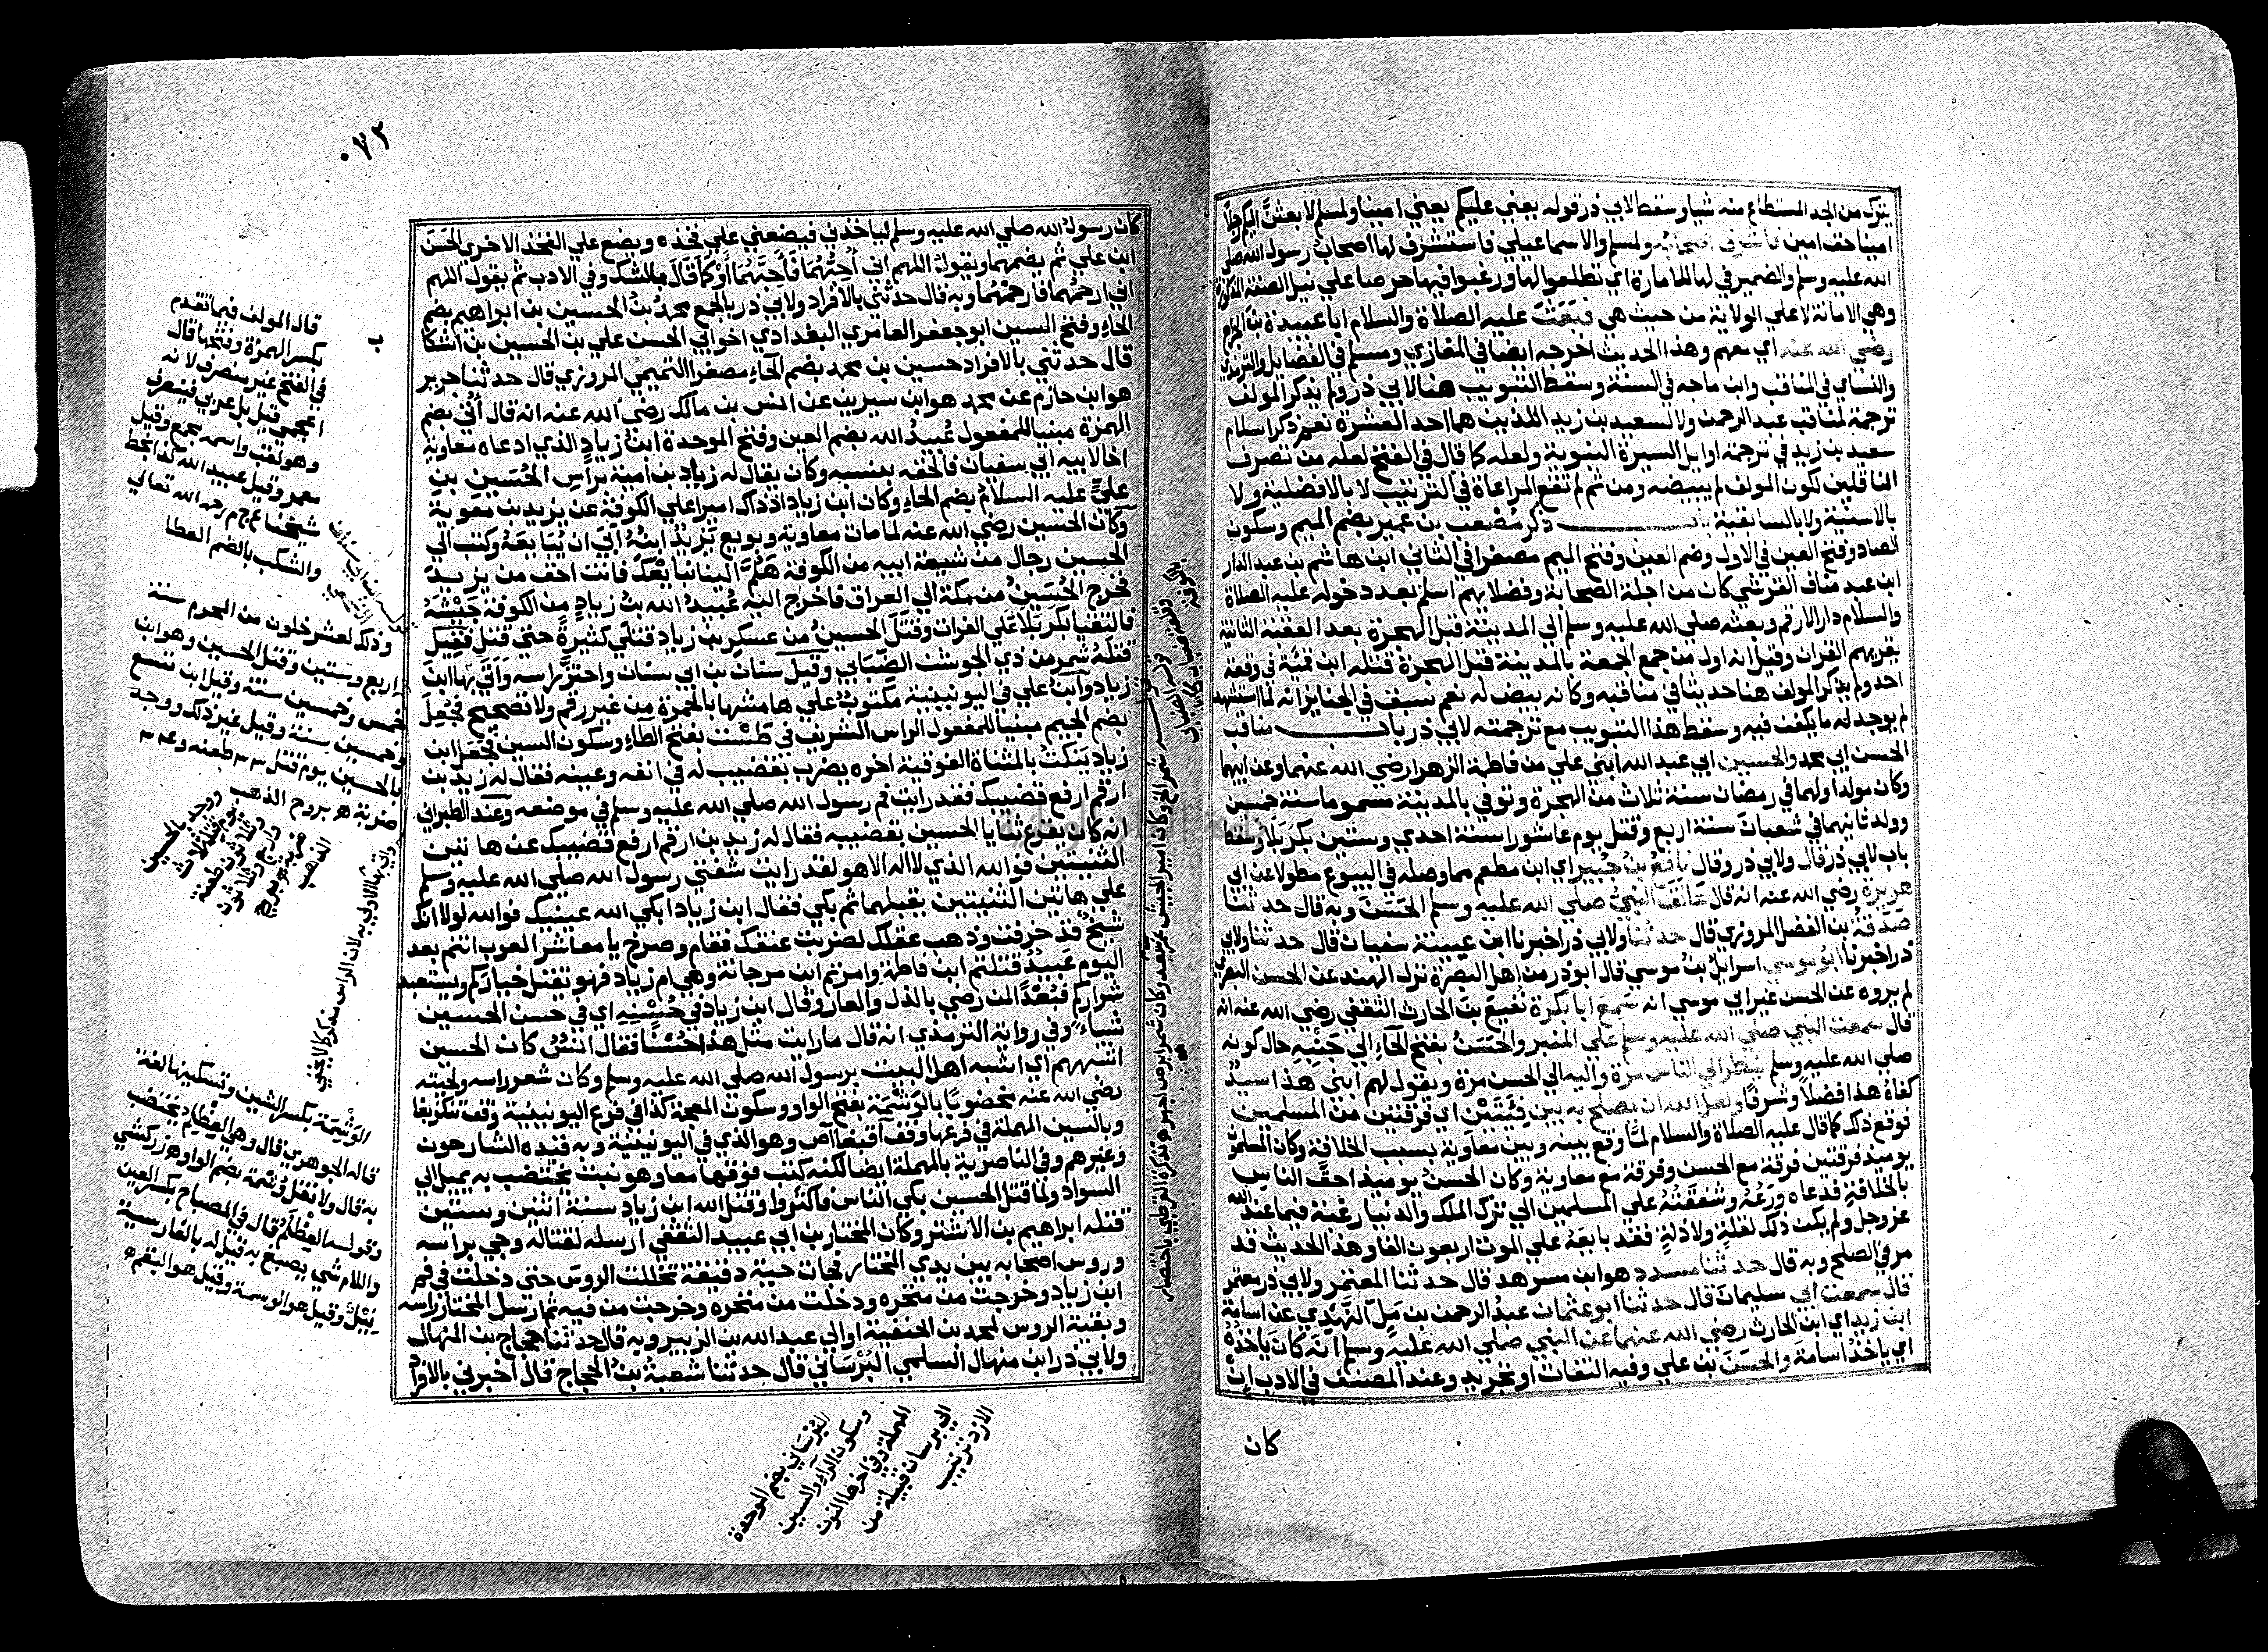 يترك من الجد المستطاع منه شيا وسقط لابي ذر قوله يعني عليكم يعني امينا ولمسلم لا بعثن اليكم رجلا
امينا حق امين فاشرف اصحابه ولمسلم والاسماعيلي فاستشرف لها اصحاب رسول الله صلي
الله عليه وسلم والضمير في لها للامارة اي تطلعوا لها ورغبوا فيها حرصا علي نيل الصفة المذكورة
وهي الامانة لا علي الولاية من حيث هي فبعث عليه الصلاة والسلام ابا عبيدة بن الجراح
رضي الله عنه اي معهم وهذا الحديث اخرجه ايضا في المغازي ومسلم في الفضايل والترمذي
والنساي في المناقب وابن ماجه في السنة وسقط التبويب هنا لابي ذر ولم يذكر المولف
ترجمة لمناقب عبد الرحمن ولا لسعيد بن زيد اللذين هما احد العشرة نعم ذكر اسلام
سعيد بن زيد في ترجمة اوايل السيرة النبوية ولعله كما قال في الفتح لعله من تصرف
الناقلين لكون المولف لم يبيضه ومن ثم لم تقع المراعاة في الترتيب لا بالافضلية ولا
بالاسنية ولا بالسابقية باب ذكر مصعب بن عمير بضم الميم وسكون
الصاد وفتح العين في الاول وضم العين وفتح الميم مصغرا في الثاني ابن هاشم بن عبد الدار
ابن عبد مناف القرشي كان من اجلة الصحابة وفضلايهم اسلم بعد دخوله عليه الصلاة
والسلام دار الارقم وبعثه صلي الله عليه وسلم الي المدينة قبل الهجرة بعد العقبة الثانية
يقريهم القران وقيل انه اول من جمع الجمعة بالمدينة قبل الهجرة قتله ابن قمئة في وقعة
احد ولم يذكر المولف هنا حديثا في مناقبه وكانه بيض له نعم سبق في الجنايز انه لما استشهد
لم يوجد له ما يكفن فيه وسقط هذا التبويب مع ترجمته لابي ذر باب مناقب
الحسن ابي محمد والحسين ابي عبد الله ابني علي من فاطمة الزهرا رضي الله عنهما وعن ابيهما
وكان مولد اولهما في رمضان سنة ثلاث من الهجرة وتوفي بالمدينة مسموما سنة خمسين
وولد ثانيهما في شعبان سنة اربع وقتل يوم عاشورا سنة احدي وستين بكربلا وسقط
باب لابي ذر قال ولابي ذر وقال نافع بن جبير اي ابن مطعم مما وصله في البيوع مطولا عن ابي
هريرة رضي الله عنه انه قال عانق النبي صلي الله عليه وسلم الحسن وبه قال حدثنا
صدقة بن الفضل المروزي قال حدثنا ولابي ذر اخبرنا ابن عيينة سفيان قال حدثنا ولابي
ذر اخبرنا ابو موسي اسرايل بن موسي قال ابو ذر من اهل البصرة نزل الهند عن الحسن البصري
لم يروه عن الحسن غير ابي موسي انه سمع ابا بكرة نفيع بن الحارث الثقفي رضي الله عنه انه
قال سمعت النبي صلي الله عليه وسلم علي المنبر والحسن بفتح الحاء الي جنبه حال كونه
صلي الله عليه وسلم ينظر الي الناس مرة واليه الي الحسن مرة ويقول لهم ابني هذا سيد
كفاه هذا فضلا وشرفا ولعل الله ان يصلح به بين فئتين اي فرقتين من المسلمين
فوقع ذلك كما قال عليه الصلاة والسلام لما وقع بينه وبين معاوية بسبب الخلافة وكان المسلمون
يوميذ فرقتين فرقة مع الحسن وفرقة مع معاوية وكان الحسن يوميذ احق الناس
بالخلافة فدعاه ورعه وشفقته علي المسلمين الي ترك الملك والدنيا رغبة فيما عند الله
عز وجل ولم يكن ذلك لقلة ولا ذلة فقد بايعه علي الموت اربعون الفا وهذا الحديث قد
مر في الصلح وبه قال حدثنا مسدد هو ابن مسرهد قال حدثنا المعتمر ولابي ذر معتمر
قال سمعت ابي سليمان قال حدثنا ابو عثمان عبد الرحمن بن مل النهدي عن اسامة
ابن زيد اي ابن الحارث رضي الله عنهما عن النبي صلي الله عليه وسلم انه كان ياخذه
اي ياخذ اسامة والحسن بن علي وفيه التفات او تجريد وعند المصنف في الادب ان
كان
كان رسول الله صلي الله عليه وسلم لياخذني فيضعني علي فخذه ويضع علي الفخذ الاخري الحسن
ابن علي ثم يضمهما ويقول اللهم اني احبهما فاحبهما او كما قال بالشك وفي الادب ثم يقول اللهم
اني ارحمهما فارحمهما وبه قال حدثني بالافراد ولابي ذر بالجمع محمد بن الحسين بن ابراهيم بضم
الحاء وفتح السين ابو جعفر العامري البغدادي اخو ابي الحسن علي بن الحسين بن اشكا
قال حدثني بالافراد حسين بن محمد بضم الحاء مصغرا التميمي المروزي قال حدثنا جرير
هو ابن حازم عن محمد هو ابن سيرين عن انس بن مالك رضي الله عنه انه قال أتي بضم
الهمزة مبنيا للمفعول عبيد الله بضم العين وفتح الموحدة ابن زياد الذي ادعاه معاوية
اخا لابيه ابي سفيان فالحقه بنسبه وكان يقال له زياد بن امية براس الحسين بن
علي عليه السلام بضم الحاء وكان ابن زياد اذ ذاك اميرا علي الكوفة عن يزيد بن معوية
وكان الحسين رضي الله عنه لما مات معاوية وبويع يزيد ابنه ابي ان يبايعه وكتب الي
الحسين رجال من شيعة ابيه من الكوفة هلم الينا نبايعك فانت احق من يزيد
فخرج الحسين من مكة الي العراق فاخرج اليه عبيد الله بن زياد من الكوفة جيشه
فالتقيا بكربلا علي الفرات وقتل الحسين من عسكر بن زياد قتلي كثيرة حتي قتل قتيل
قتله شمر من ذي الجوشن الضبابي وقيل سنان بن ابي سنان واحتز راسه واتي بها ابن
زياد وابن علي في اليونينية مكتوبة علي هامشها بالحمرة من غير رقم ولا تصحيح فجعل
بضم الجيم مبنيا للمفعول الراس الشريف في طست بفتح الطاء وسكون السين فجعل ابن
زياد ينكت بالمثناة الفوقية اخره يضرب بقضيب له في انفه وعينه فقال له زيد بن
ارقم ارفع قضيبك فقد رايت فم رسول الله صلي الله عليه وسلم في موضعه وعند الطبراني
انه كان يقرع ثنايا الحسين بقضيبه فقال له زيد بن ارقم ارفع قضيبك عن هاتين
الثنيتين فوالله الذي لا اله الا هو لقد رايت شفتي رسول الله صلي الله عليه وسلم
علي هاتين الثنيتين يقبلهما ثم بكي فقال ابن زياد ابكي الله عينيك فوالله لولا انك
شيخ قد خرفت وذهب عقلك لضربت عنقك فقام وصرخ يا معاشر العرب انتم بعد
اليوم عبيد قتلتم ابن فاطمة وامرتم ابن مرجانة وهي ام زياد فهو يقتل خياركم ويستعبد
شراركم فبعدا لمن رضي بالذل والعار وقال ابن زياد في حسنه اي في حسن الحسين
شياء وفي رواية الترمذي انه قال ما رايت مثل هذا حسنا فقال انس كان الحسين
اشبههم اي اشبه اهل البيت برسول الله صلي الله عليه وسلم وكان شعر راسه ولحيته
رضي الله عنه مخضوبا بالوشمة بفتح الواو وسكون المعجمة كذا في فرع اليونينية وقف تنكزبغا
وبالسين المهملة في فرعها وقف آقبغا آص وهو الذي في اليونينية وبه قيده الشارحون
وغيرهم وفي الناصرية بالمهملة ايضا لكنه كتب فوقها معا وهو نبت يختضب به يميل الي
السواد ولما قتل الحسين بكي الناس فاكثروا وقتل الله ابن زياد سنة اثنين وستين
قتله ابراهيم بن الاشتر وكان المختار بن ابي عبيد الثقفي ارسله لقتاله وجي براسه
وروس اصحابه بين يدي المختار فجات حية دقيقة تخللت الروس حتي دخلت في فم
ابن زياد وخرجت من منخره ودخلت من منخره وخرجت من فيه ثم ارسل المختار راسه
وبقية الروس لمحمد بن الحنفية او الي عبد الله بن الزبير وبه قال حدثنا حجاج بن المنهال
ولابي ذر ابن منهال السلمي البرساني قال حدثنا شعبة بن الحجاج قال اخبرني بالافراد
قال المولف فيما تقدم
بكسر الهمزة وفتحها قال
في الفتح غير منصرف لانه
اعجمي قيل بل عربي فينصرف
وهو لقب واسمه مجمع وقيل
معمر وقيل عبيد الله كذا بخط
شيخنا عجم رحمه الله تعالي
والشكب بالضم العطا
وذلك لعشر خلون من المحرم سنة
اربع وستين وقتل الحسين وهو ابن
خمس وخمسين سنة وقيل ابن تسع
وخمسين سنة وقيل غير ذلك ووجد
بالحسين يوم قتل ٣٣ طعنه و ٣٤
ضربة هـ مروج الذهب
الوشمة بكسر الشين وتسكينها لغة
قاله الجوهري قال وهي العظلم يختضب
به قال ولا تقل وشمة بضم الواو هـ زركشي
وقوله العظلم قال في المصباح بكسر العين
واللام شي يصبغ به قيل له بالفارسية
نيل وقيل هو الوسمة وقيل هو البقم هـ
البرساني بضم الموحدة
وسكون الراء والسين
المهملة وفي اخرها النون
الي برسان قبيلة من
الازد ترتيب